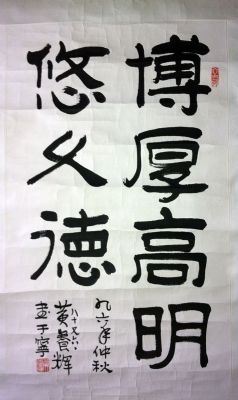 博厚高明
悠久德
九六年仲秋
八十又六
黄養輝
書于寧